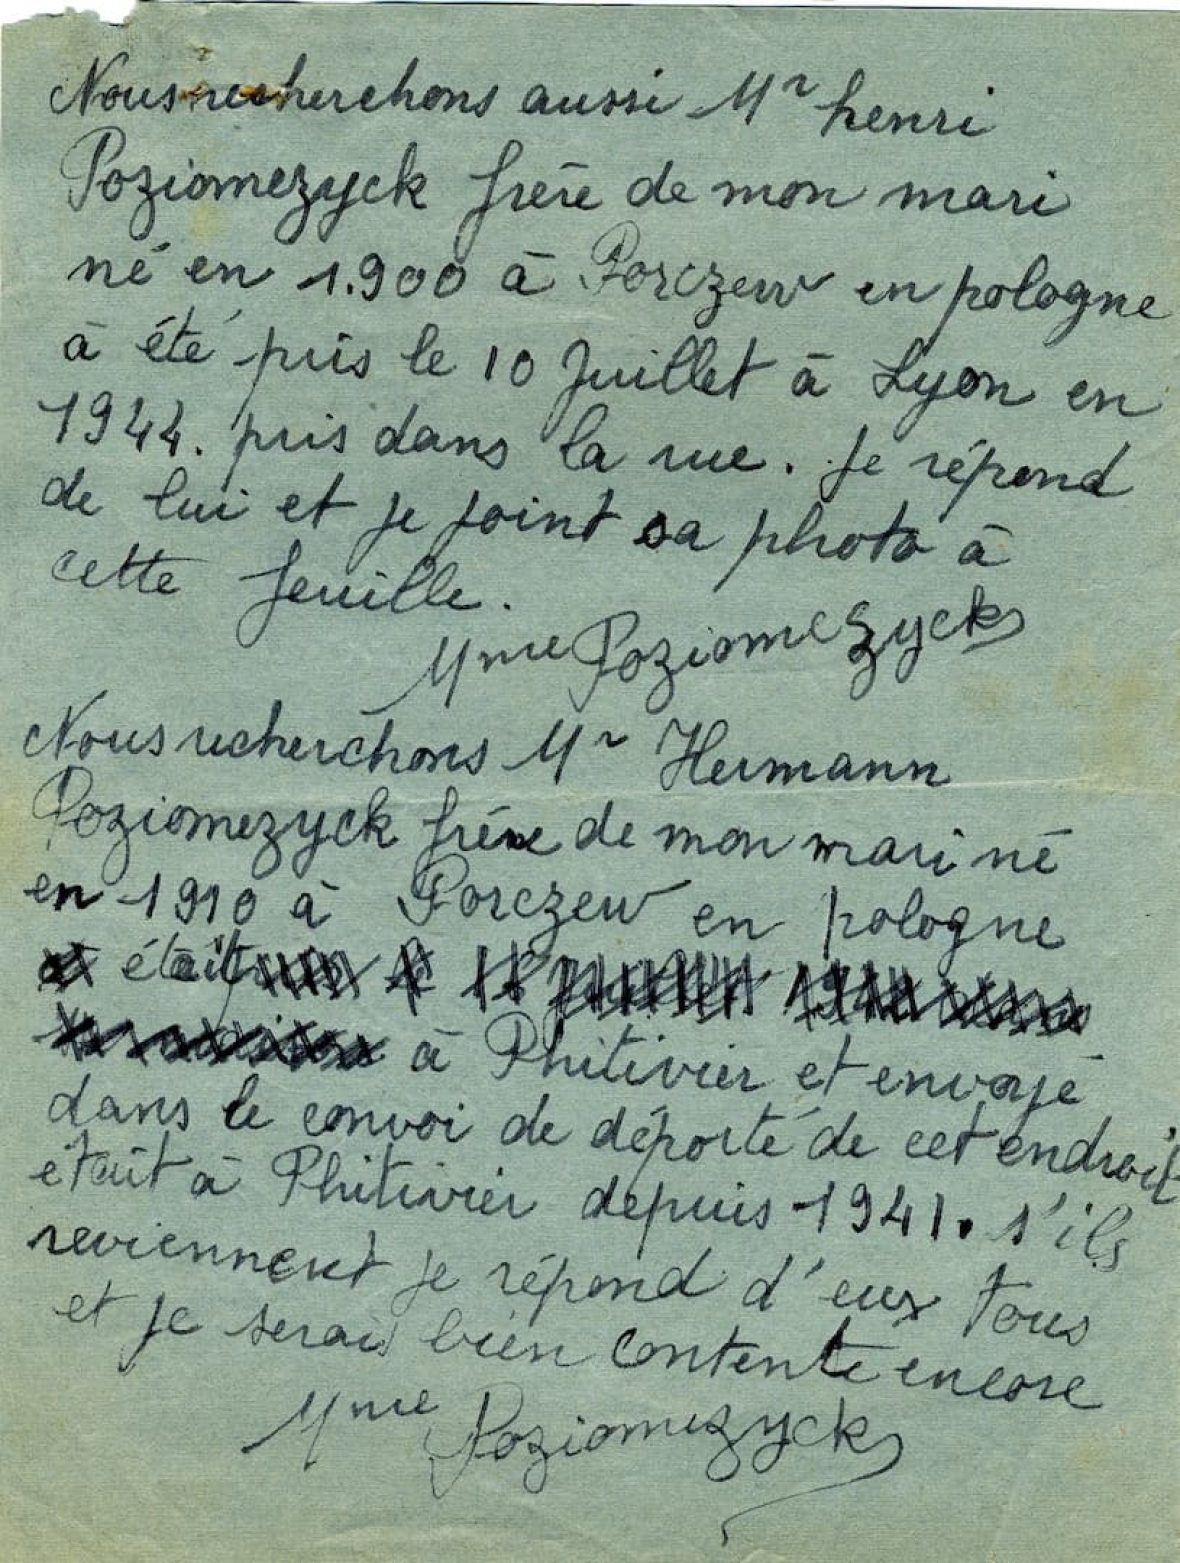 Nous recherchons aussi Mr henri
Poziomezyck frère de mon mari
né en 1.900 à Porczew en pologne
à été pris le 10 Juillet à Lyon en
1944. pris dans la rue. Je répond
de lui et je joint sa photo à
cette feuille.
Mme Poziomezyck
Nous recherchons Mr Hermann
Poziomezyck frére de mon mari né
en 1910 à Porczew en pologne
était
à Phitivier et envoyé
dans le convoi de déporté de cet endroit
était à Phitivier depuis 1941. s'ils
reviennent je répond d'eux tous
et je serais bien contente encore
Mme Poziomezyck